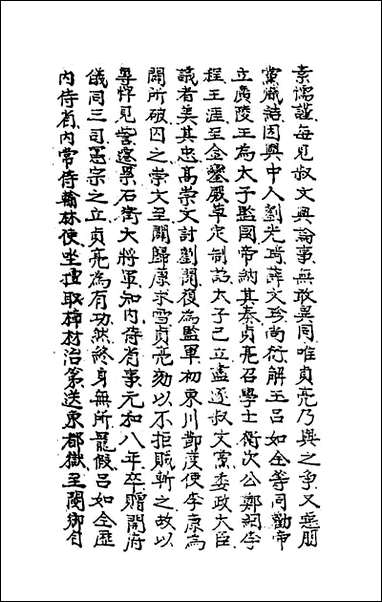 素懦謹每見叔文與論事無敢異同唯貞亮乃與之爭又惡朋
黨熾諸因與中人劉光琦薛文珍尚衍解玉呂如全等同勸帝
立廣陵王為太子監國帝納其奏貞亮召學士衛次公鄭絪李
程王涯至金鑾殿草定制詔太子已立盡逐叔文黨委政大臣
議者美其忠髙崇文討劉闢復為監軍初東川節度使李康為
闢所破囚之崇文至闢歸康求雪貞亮劾以不拒賊斬之故以
專悍見訾遷累右衛大將軍知内侍省事元和八年卒贈開府
儀同三司憲宗之立貞亮為有功然終身無所寵假呂如全歴
内侍省内常侍翰林使坐擅取樟材治第送東都獄至閿鄉自